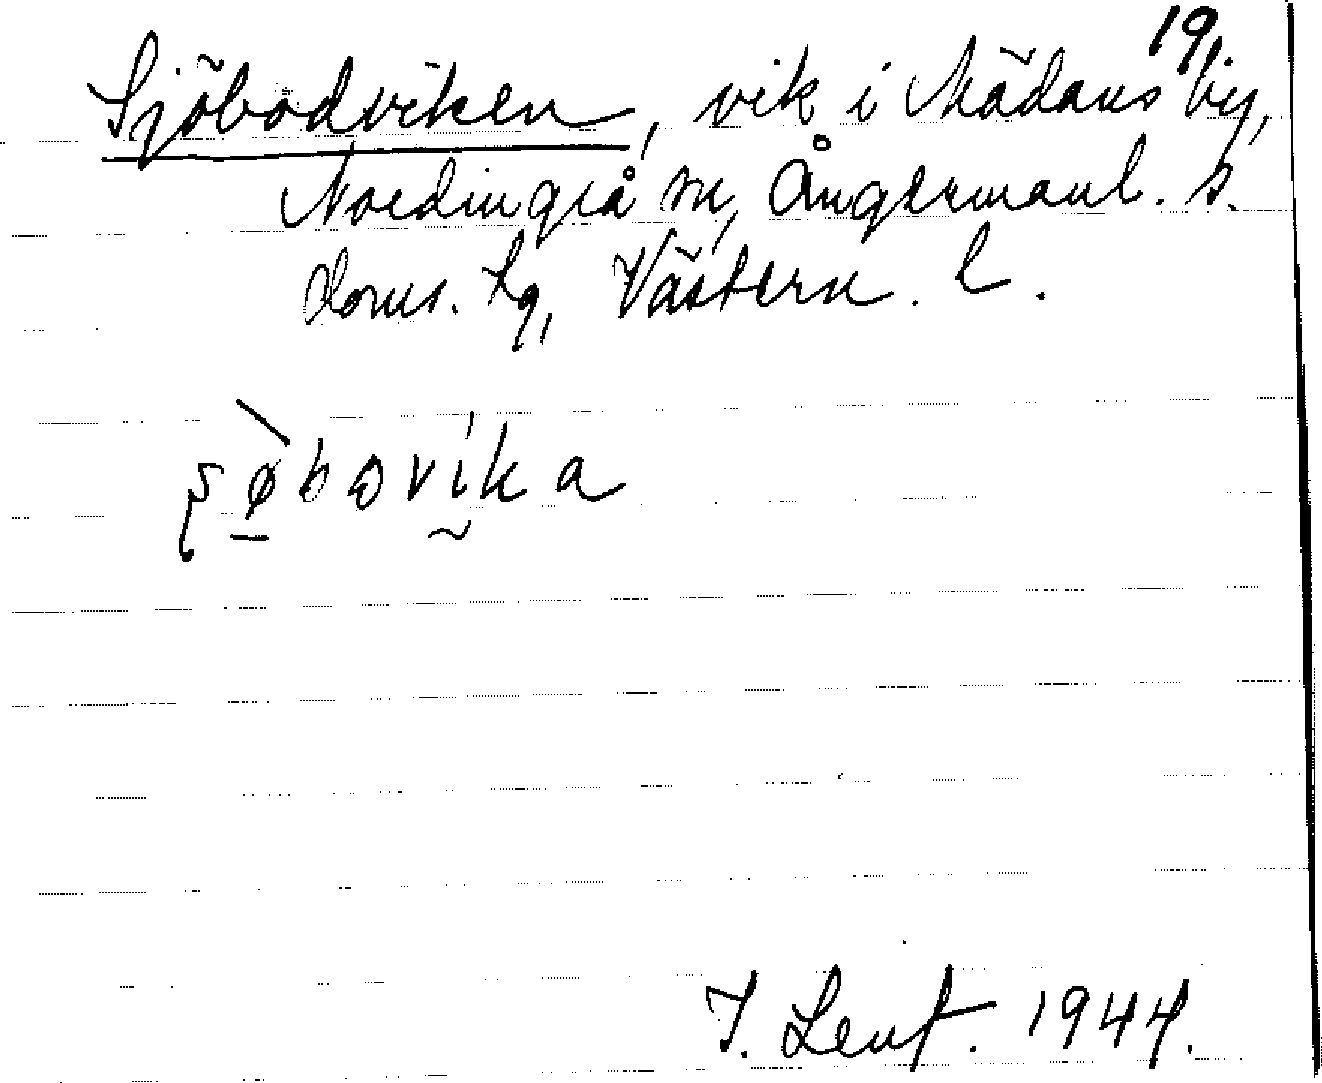 19
Sjöbodviken, vik i Mädans by,
Nordingrå sn, Ångermanl. s.
doms. tg, Västern. l.
I. Lenf. 1944.